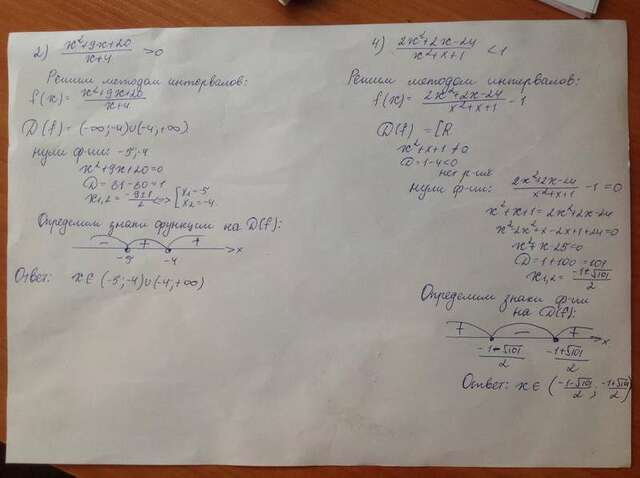 2) (x²+9x+20)/(x+4) > 0
Решим методом интервалов:
f(x) = (x²+9x+20)/(x+4)
D(f) = (-∞;-4)∪(-4;+∞)
нули ф-ии: -5;-4
x²+9x+20=0
D = 81-80=1
x₁,₂ = (-9±1)/2 <=> [x₁=-5
x₂=-4
Определим знаки функции на D(f):
- + + x
-5 -4
Ответ: x∈(-5;-4)∪(-4;+∞)
4) (2x²+2x-24)/(x²+x+1) < 1
Решим методом интервалов:
f(x) = (2x²+2x-24)/(x²+x+1) - 1
D(f) = R
x²+x+1≠0
D=1-4<0
нет р-ий
нули ф-ии: (2x²+2x-24)/(x²+x+1) - 1 = 0
x²+x+1=2x²+2x-24
x²-2x²+x-2x+1+24=0
x²+x-25=0
D=1+100=101
x₁,₂ = (-1±√101)/2
Определим знаки ф-ии
на D(f):
+ - + x
(-1-√101)/2 (-1+√101)/2
Ответ: x∈((-1-√101)/2; (-1+√101)/2)